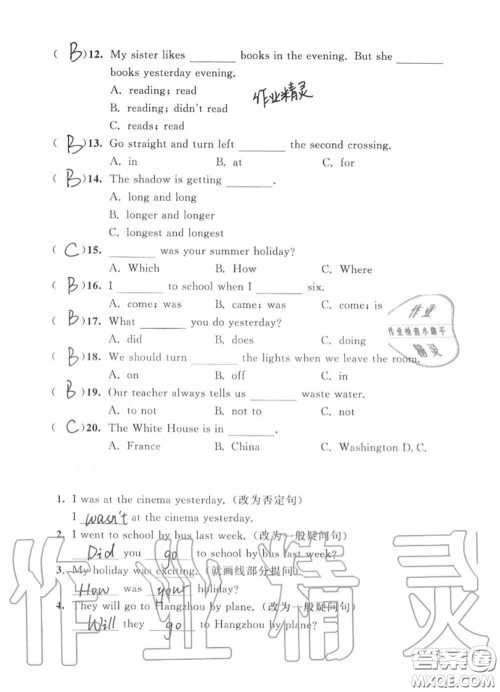 ( B )12. My sister likes ______ books in the evening. But she ______
books yesterday evening.
A. reading; read
B. reading; didn't read
C. reads; read
作业精灵
( B )13. Go straight and turn left ______ the second crossing.
A. in B. at C. for
( B )14. The shadow is getting ______.
A. long and long
B. longer and longer
C. longest and longest
( C )15. ______ was your summer holiday?
A. Which B. How C. Where
( B )16. I ______ to school when I ______ six.
A. come; was B. came; was C. come; is
( B )17. What ______ you do yesterday?
A. did B. does C. doing
作业
作业检查小助手
精灵
( B )18. We should turn ______ the lights when we leave the room.
A. on B. off C. in
( B )19. Our teacher always tells us ______ waste water.
A. to not B. not to C. not
( C )20. The White House is in ______.
A. France B. China C. Washington D. C.
1. I was at the cinema yesterday. (改为否定句)
I wasn't at the cinema yesterday.
2. I went to school by bus last week. (改为一般疑问句)
Did you go to school by bus last week?
3. My holiday was exciting. (就画线部分提问)
How was your holiday?
4. They will go to Hangzhou by plane. (改为一般疑问句)
Will they go to Hangzhou by plane?
作业精灵
答案圈
MXQE.COM